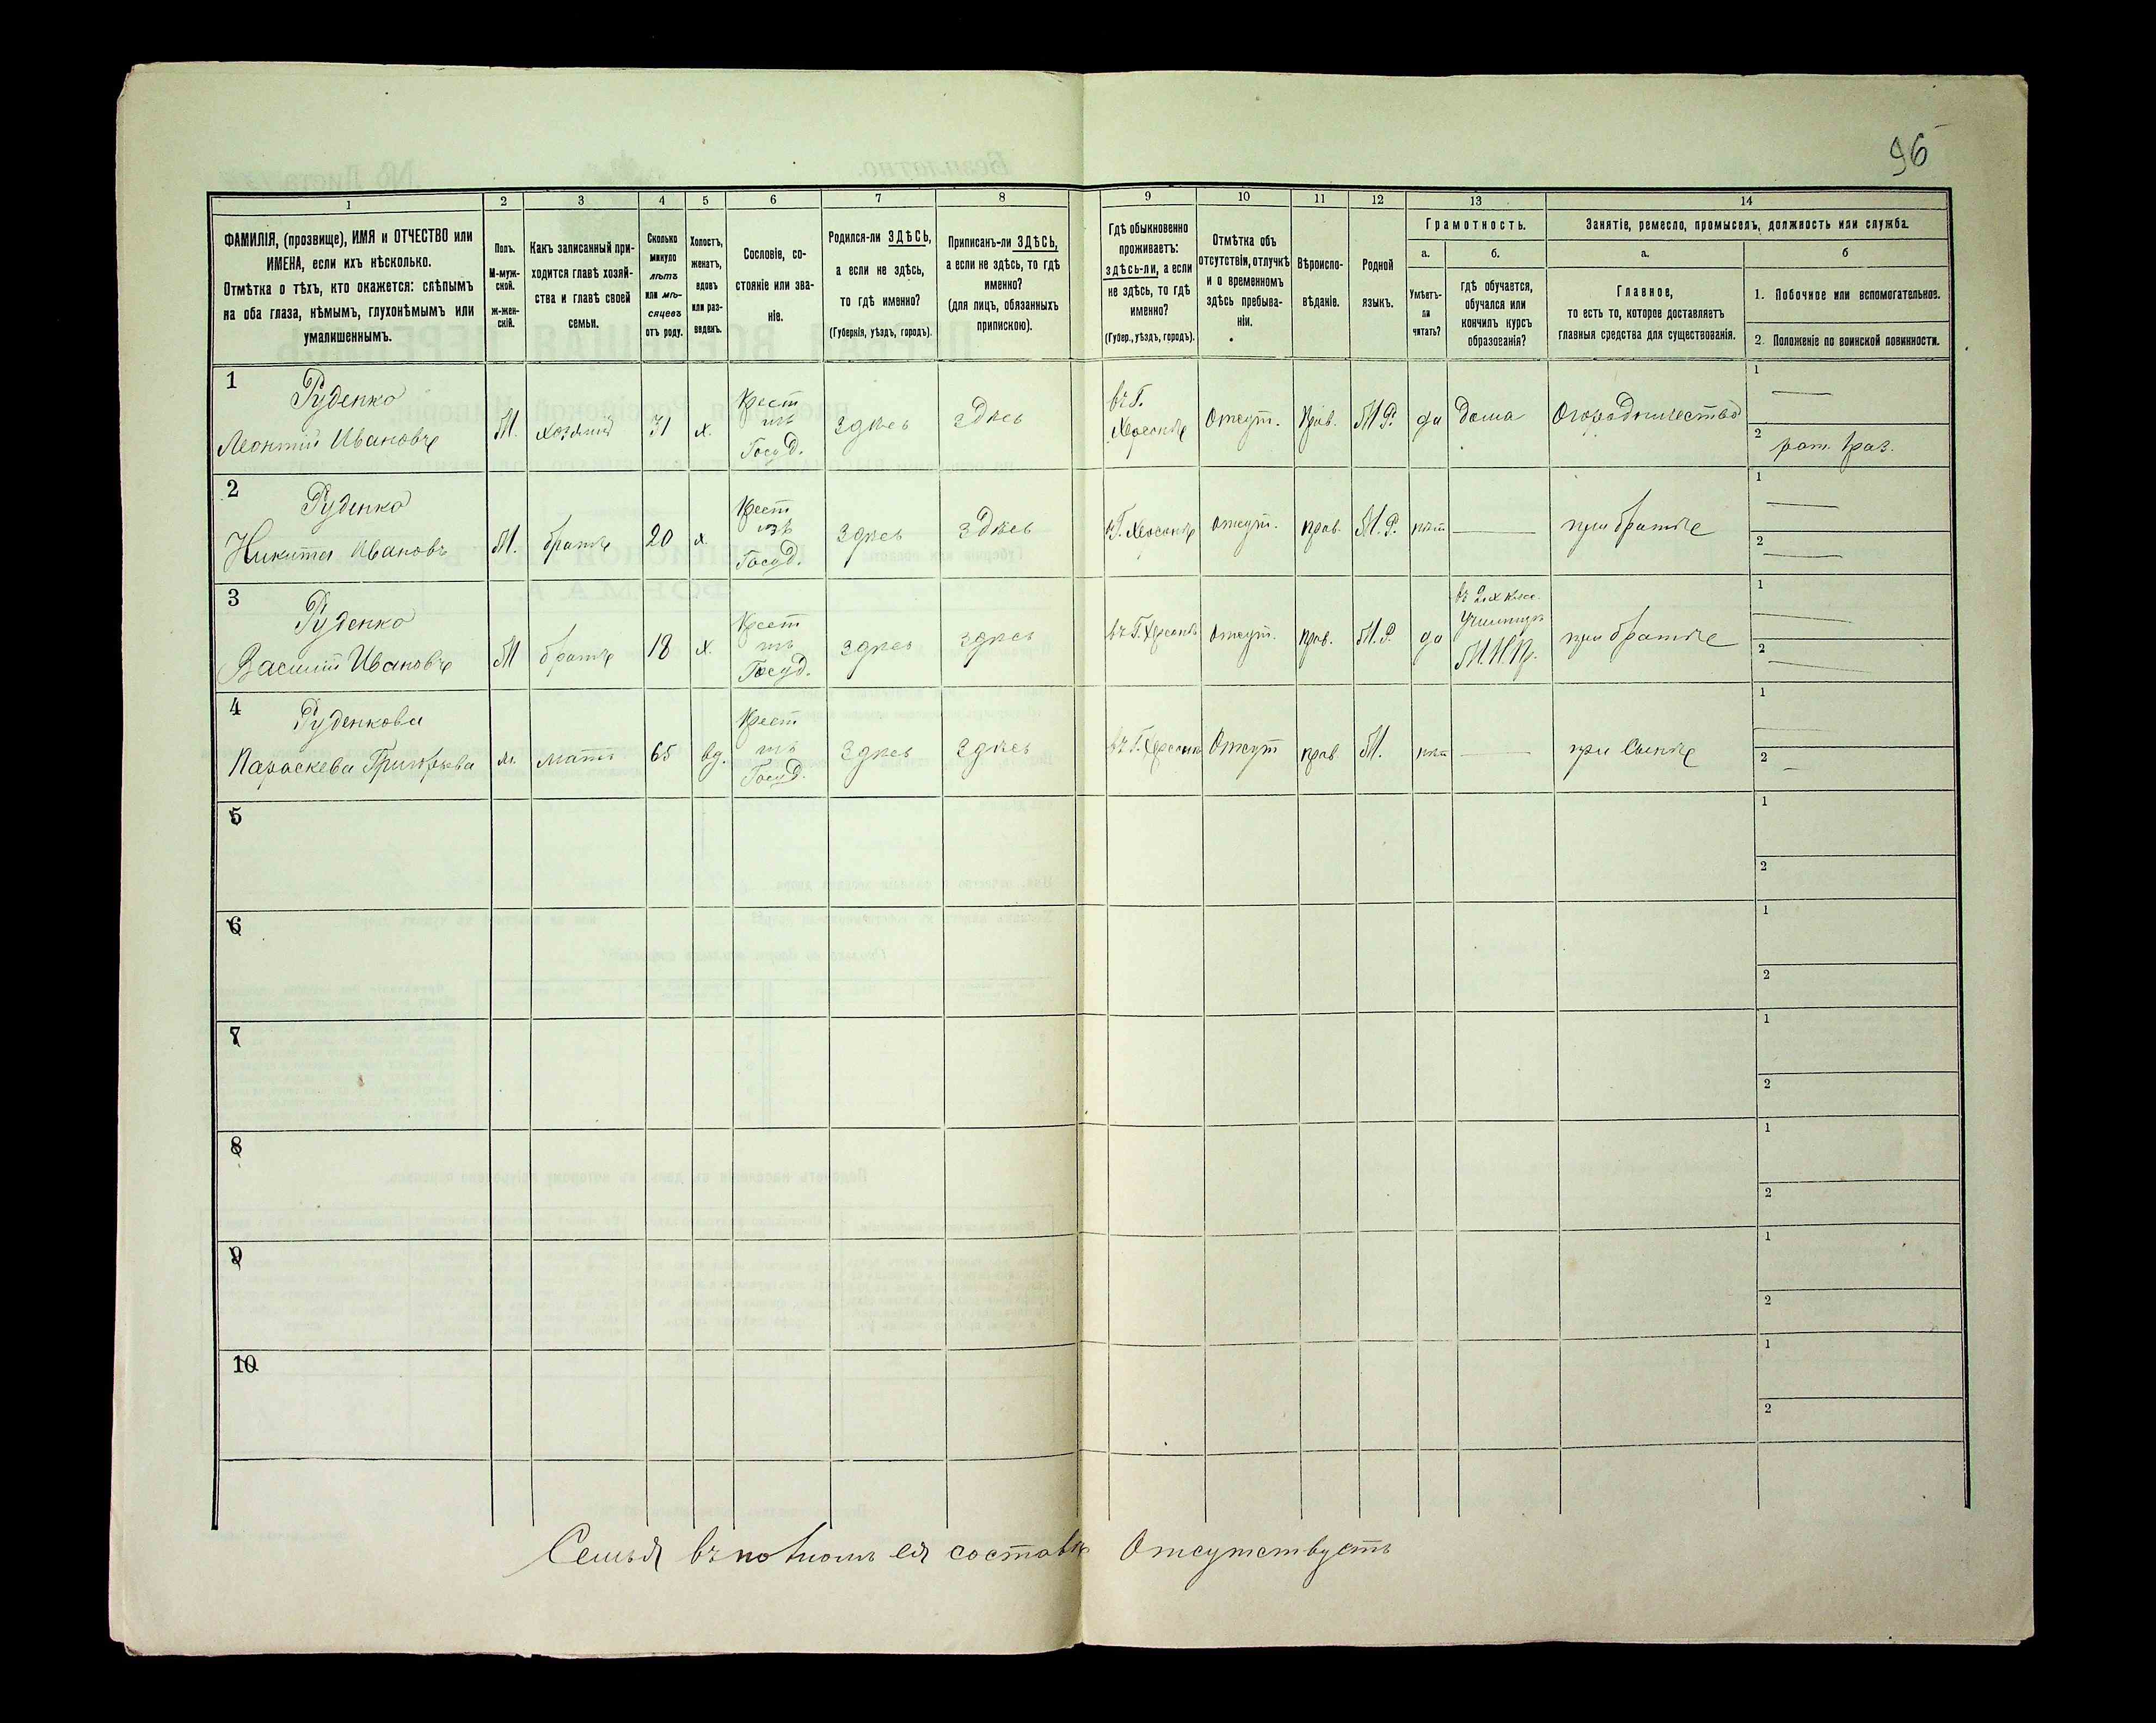 96
1 2 3 4 5 6 7 8 9 10 11 12 13 14
ФАМИЛІЯ, (прозвище), ИМЯ и ОТЧЕСТВО или
ИМЕНА, если ихъ нѣсколько.
Отмѣтка о тѣхъ, кто окажется: слѣпымъ
на оба глаза, нѣмымъ, глухонѣмымъ или
умалишеннымъ.
Полъ.
М-муж-
ской.
ж-жен-
скій.
Какъ записанный при-
ходится главѣ хозяй-
ства и главѣ своей
семьи.
Сколько
минуло
лѣтъ
или мѣ-
сяцевъ
отъ роду.
Холостъ,
женатъ,
вдовъ
или раз-
веденъ.
Сословіе, со-
стояніе или зва-
ніе.
Родился-ли ЗДѢСЬ,
а если не здѣсь,
то гдѣ именно?
(Губернія, уѣздъ, городъ).
Приписанъ-ли ЗДѢСЬ,
а если не здѣсь, то гдѣ
именно?
(для лицъ, обязанныхъ
припискою).
Гдѣ обыкновенно
проживаетъ:
здѣсь-ли, а если
не здѣсь, то гдѣ
именно?
(Губер., уѣздъ, городъ).
Отмѣтка объ
отсутствіи, отлучкѣ
и о временномъ
здѣсь пребыва-
ніи.
Вѣроиспо-
вѣданіе.
Родной
языкъ.
Грамотность.
а.
Умѣетъ-
ли
читать?
б.
гдѣ обучается,
обучался или
кончилъ курсъ
образованія?
Занятіе, ремесло, промыселъ, должность или служба.
а.
Главное,
то есть то, которое доставляетъ
главныя средства для существованія.
б
1. Побочное или вспомогательное.
2. Положеніе по воинской повинности.
1
Руденко
Леонтій Ивановъ
М.
хозяинъ
31
х.
Крест
изъ
Госуд.
Здѣсь
здѣсь
въ Г.
Херсонѣ
Отсут.
Прав.
М.Р.
да
дома
Огородничество
1
2
рат. 1 раз.
2
Руденко
Никита Ивановъ
М.
братъ
20
х.
Крест
изъ
Госуд.
Здѣсь
здѣсь
в Г. Херсонѣ
Отсут.
прав.
М.Р.
нѣт
при братѣ
1
2
3
Руденко
Василій Ивановъ
М
братъ
18
х.
Крест
изъ
Госуд.
здѣсь
здѣсь
въ Г. Херсонѣ
Отсут.
прав.
М.Р.
да
въ 2х клас.
Училищѣ
М.Н.Пр.
при братѣ
1
2
4
Руденкова
Параскева Григорьева
ж.
мать
65
вд.
Крест
изъ
Госуд.
Здѣсь
здѣсь
въ Г. Херсонѣ
Отсут
прав
М.
нѣт
при Сынѣ
1
2
5
1
2
6
1
2
7
1
2
8
1
2
9
1
2
10
1
2
Семья въ полномъ ея составѣ Отсутствуетъ